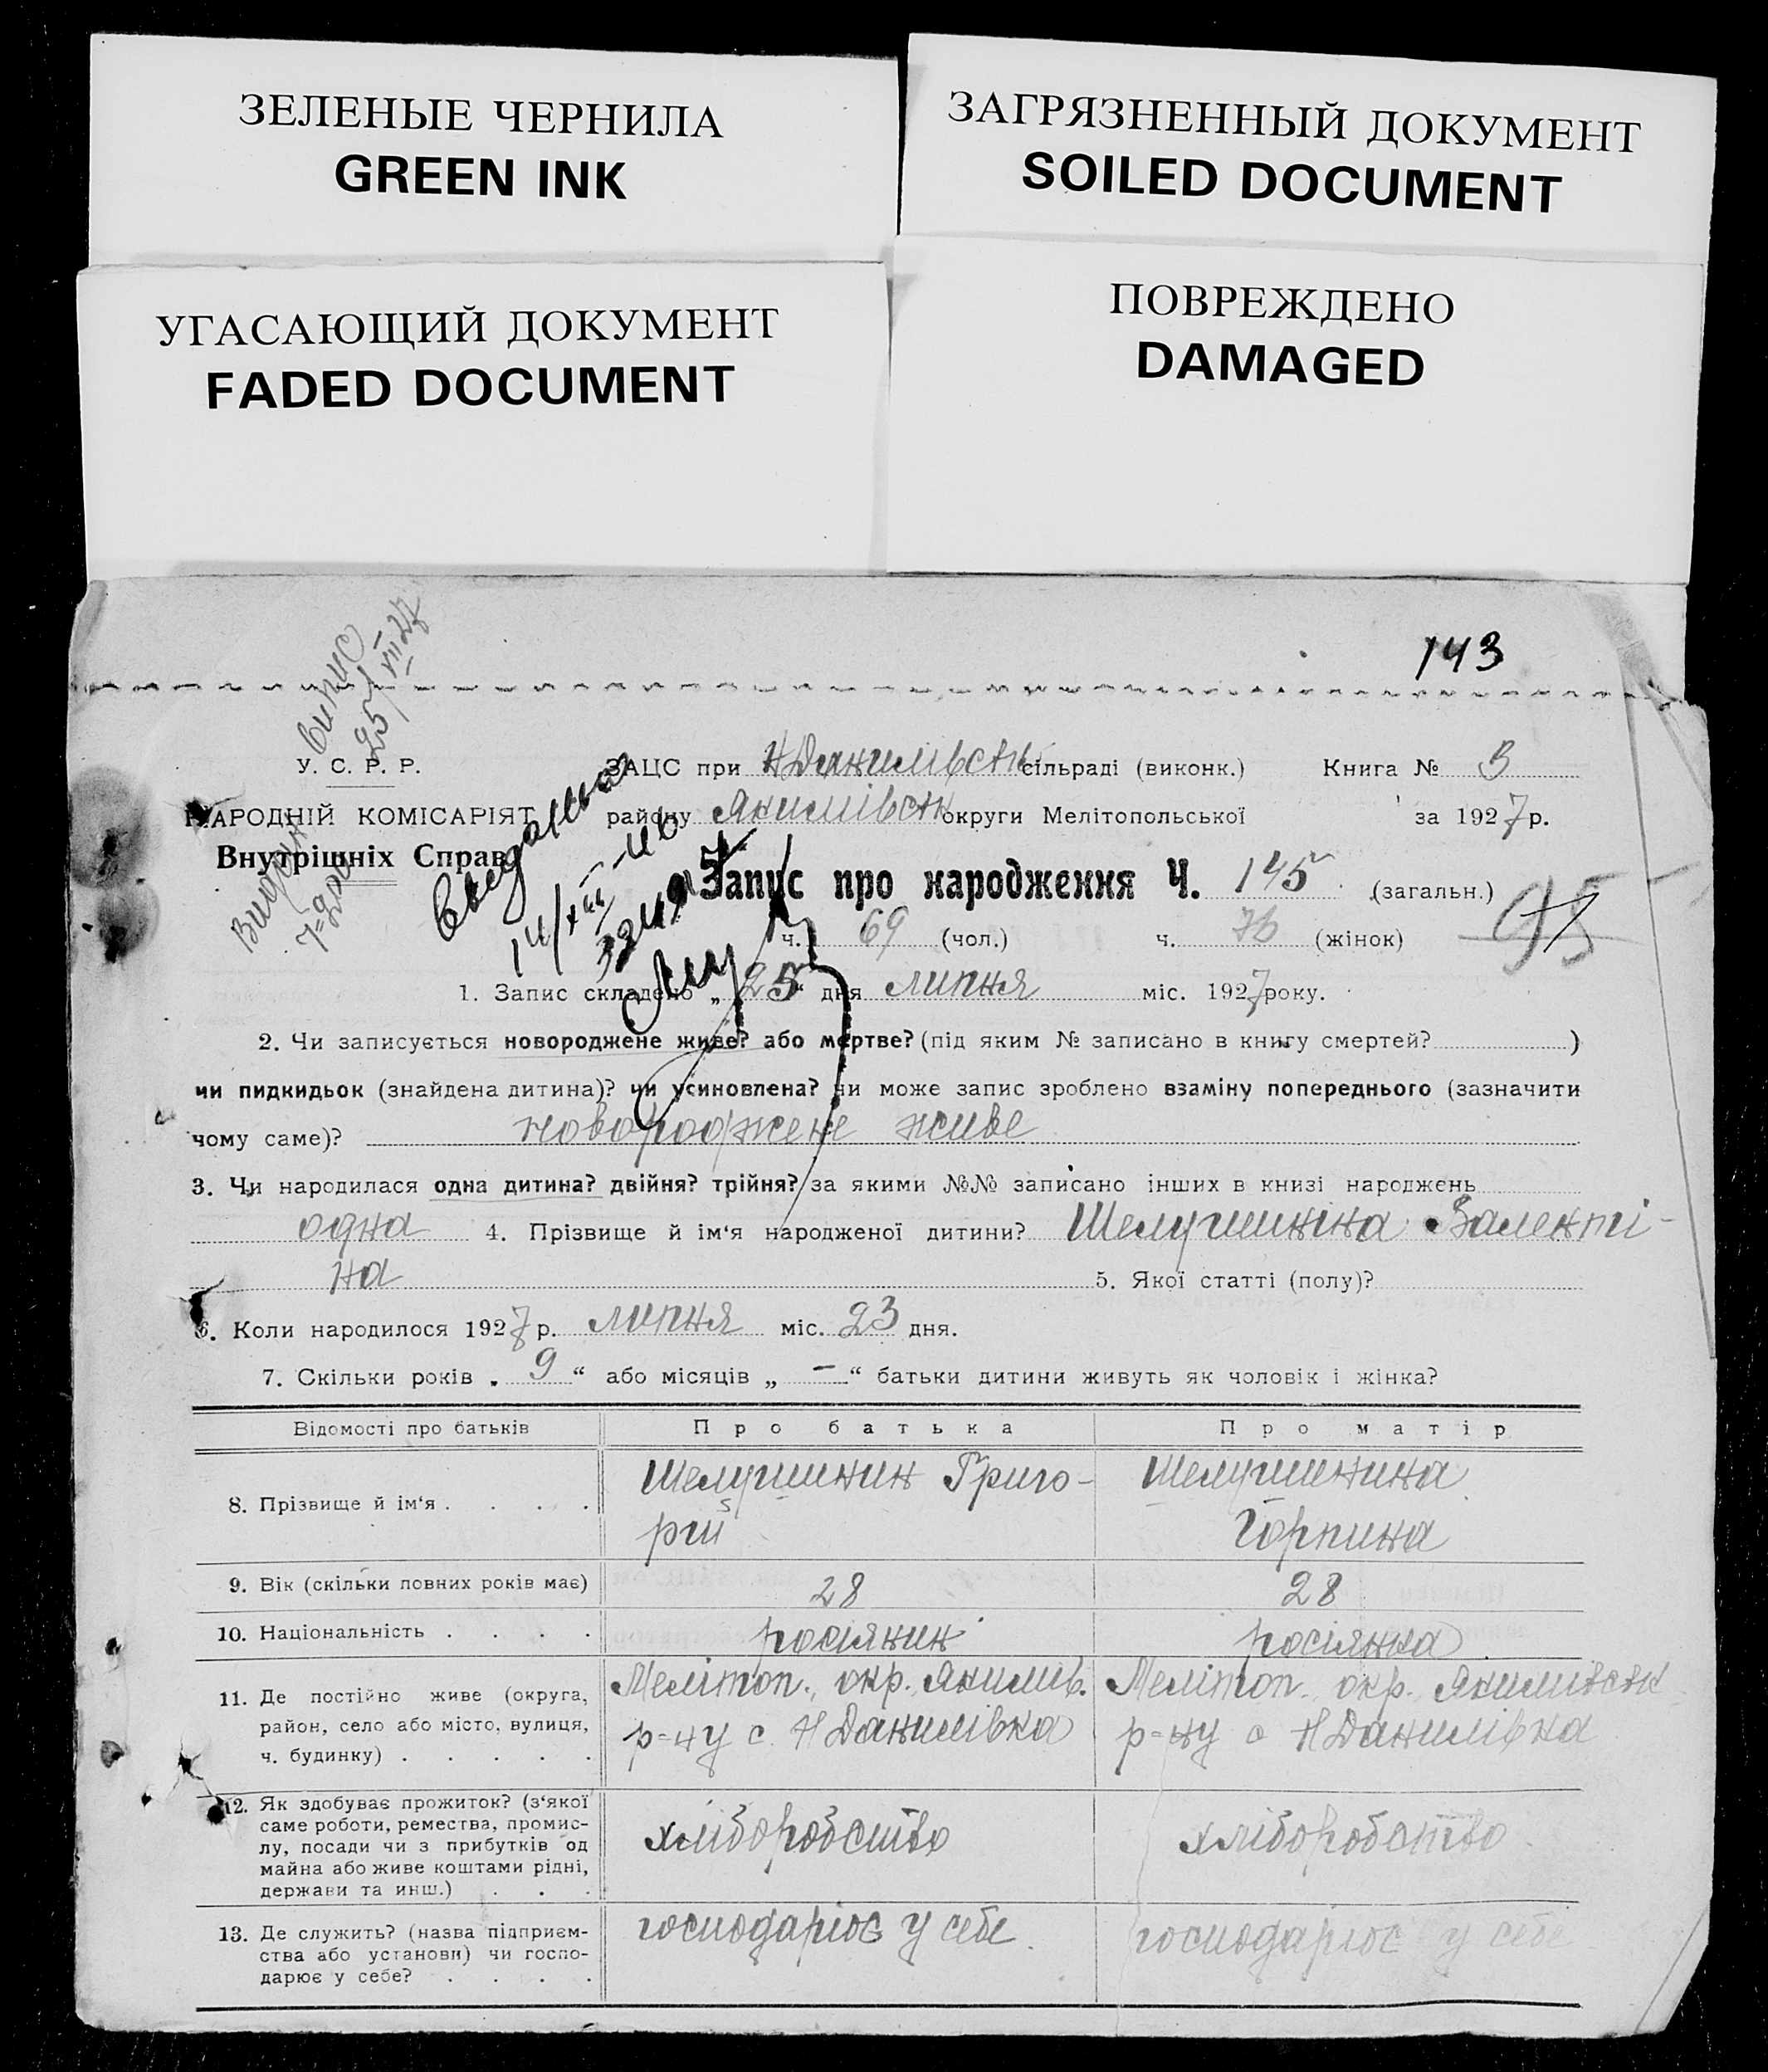 ЗЕЛЕНЫЕ ЧЕРНИЛА
GREEN INK
ЗАГРЯЗНЕННЫЙ ДОКУМЕНТ
SOILED DOCUMENT
УГАСАЮЩИЙ ДОКУМЕНТ
FADED DOCUMENT
ПОВРЕЖДЕНО
DAMAGED
143
Випис
25/VII 27
У. С. Р. Р.
НАРОДНІЙ КОМІСАРІЯТ
Внутрішніх Справ
ЗАЦС при Н Данилівськ сільраді (виконк.) Книга № 3
району Якимівськ округи Мелітопольської за 1927 р.
Запис про народження Ч. 145 (загальн.)
ч. 69 (чол.) ч. 76 (жінок)
1. Запис складено „ 25 “ дня липня міс. 1927 року.
2. Чи записується новороджене живе? або мертве? (під яким № записано в книгу смертей? )
чи пидкидьок (знайдена дитина)? чи усиновлена? чи може запис зроблено взаміну попереднього (зазначити
чому саме)? новороджене живе
3. Чи народилася одна дитина? двійня? трійня? за якими №№ записано інших в книзі народжень
одна 4. Прізвище й ім‘я народженої дитини? Шелушиніна Валенті-
на 5. Якої статті (полу)?
6. Коли народилося 1927 р. липня міс. 23 дня.
7. Скільки років „ 9 “ або місяців „ — “ батьки дитини живуть як чоловік і жінка?
Відомості про батьків Про батька Про матір
8. Прізвище й ім‘я . . . . Шелушинин Григо- Шелушинина
рій Горпина
9. Вік (скільки повних років має) 28 28
10. Національність . . . . росіянин росіянка
11. Де постійно живе (округа, Мелітоп. окр. Якимів. Мелітоп. окр. Якимівськ
район, село або місто, вулиця, р=ну с. Н Данилівка р=ну с Н Данилівка
ч. будинку) . . . . .
12. Як здобуває прожиток? (з‘якої
саме роботи, ремества, промис-
лу, посади чи з прибутків од хліборобство хліборобство
майна або живе коштами рідні,
держави та инш.) . . .
13. Де служить? (назва підприєм- господарює у себе господарює у себе
ства або установи) чи госпо-
дарює у себе? . . . .